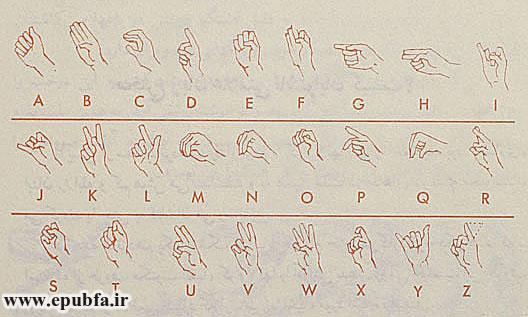 A B C D E F G H I
J K L M N O P Q R
S T U V W X Y Z
www.epubfa.ir